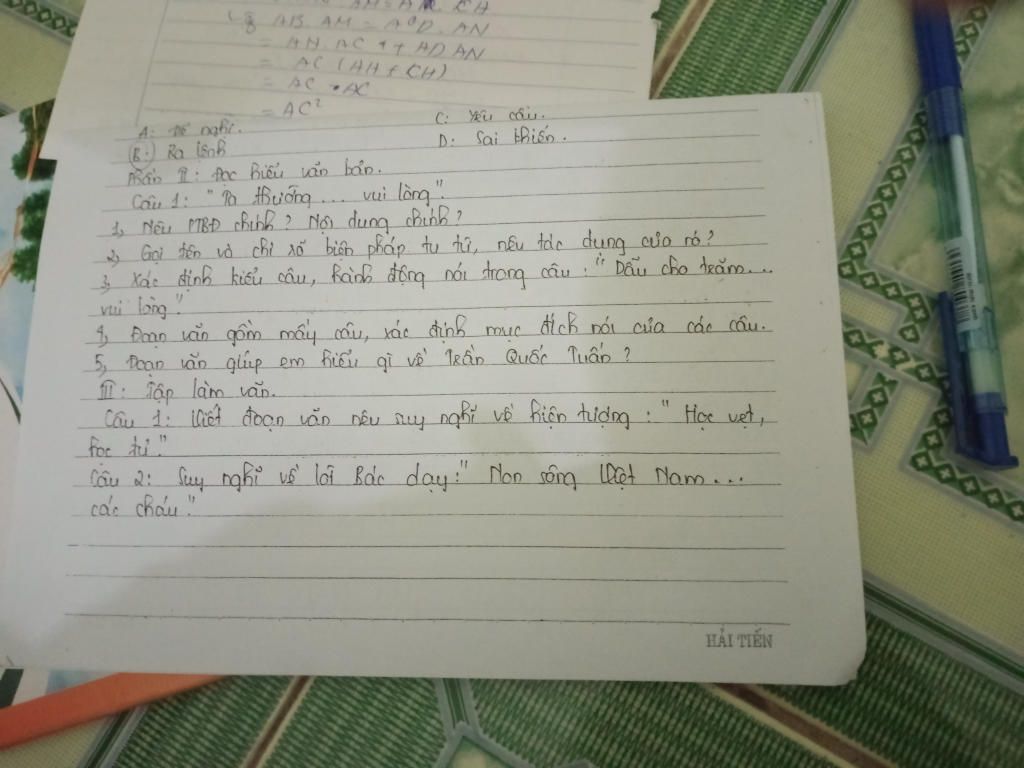 AB. AM = AD. AN
= AH. AC + AD AN
= AC (AH + CH)
= AC . AC
= AC²
A: Đề nghị. C: Yêu cầu.
B: Ra lệnh D: Sai khiến.
Phần II: Đọc hiểu văn bản.
Câu 1: "Ta thường... vui lòng"
1, Nêu PTBĐ chính? Nội dung chính?
2, Gọi tên và chỉ số biện pháp tu từ, nêu tác dụng của nó?
3, Xác định kiểu câu, hành động nói trong câu: "Dẫu cho trăm...
vui lòng"
4, Đoạn văn gồm mấy câu, xác định mục đích nói của các câu.
5, Đoạn văn giúp em hiểu gì về Trần Quốc Tuấn?
III: Tập làm văn.
Câu 1: Viết đoạn văn nêu suy nghĩ về hiện tượng: "Học vẹt,
học tủ"
Câu 2: Suy nghĩ về lời Bác dạy: "Non sông Việt Nam...
các cháu"
HẢI TIẾN